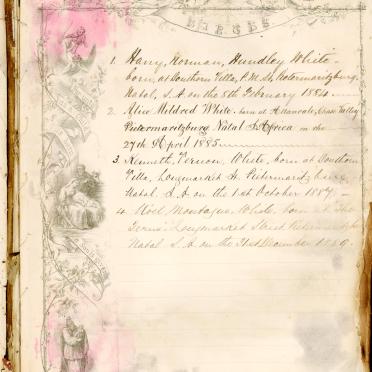 BIRTHS
1. Harry, Norman, Hundley White -
born, at Southern Villa, P.M. St, Pietermaritzburg,
Natal, S.A. on the 8th February 1884.
2. Alice Mildred White. born at Allanvale, Chase Valley
Pietermaritzburg Natal S. Africa on the
27th April 1885.
3. Kenneth, Vernon, White, born at Southern
Villa, Longmarket St. Pietermaritzburg
Natal. S.A. on the 1st October 1887.
4. Noel Montague White, born at The
Longmarket Street Pietermaritzburg
Natal S.A. on the 31st December 1889.